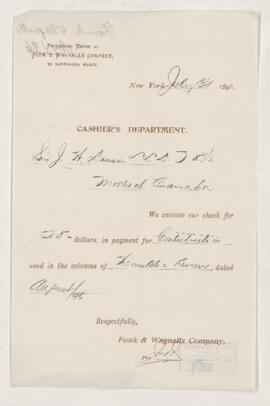 Publishing House of
FUNK & WAGNALLS COMPANY,
30 LAFAYETTE PLACE.
New York, July 31 1896.
CASHIER'S DEPARTMENT.
Sir J. W. Dawson
Montreal Canada
We enclose our check for
$25 dollars, in payment for Contribution
used in the columns of Homiletic Review, dated
August/96
Respectfully,
Funk & Wagnalls Company.